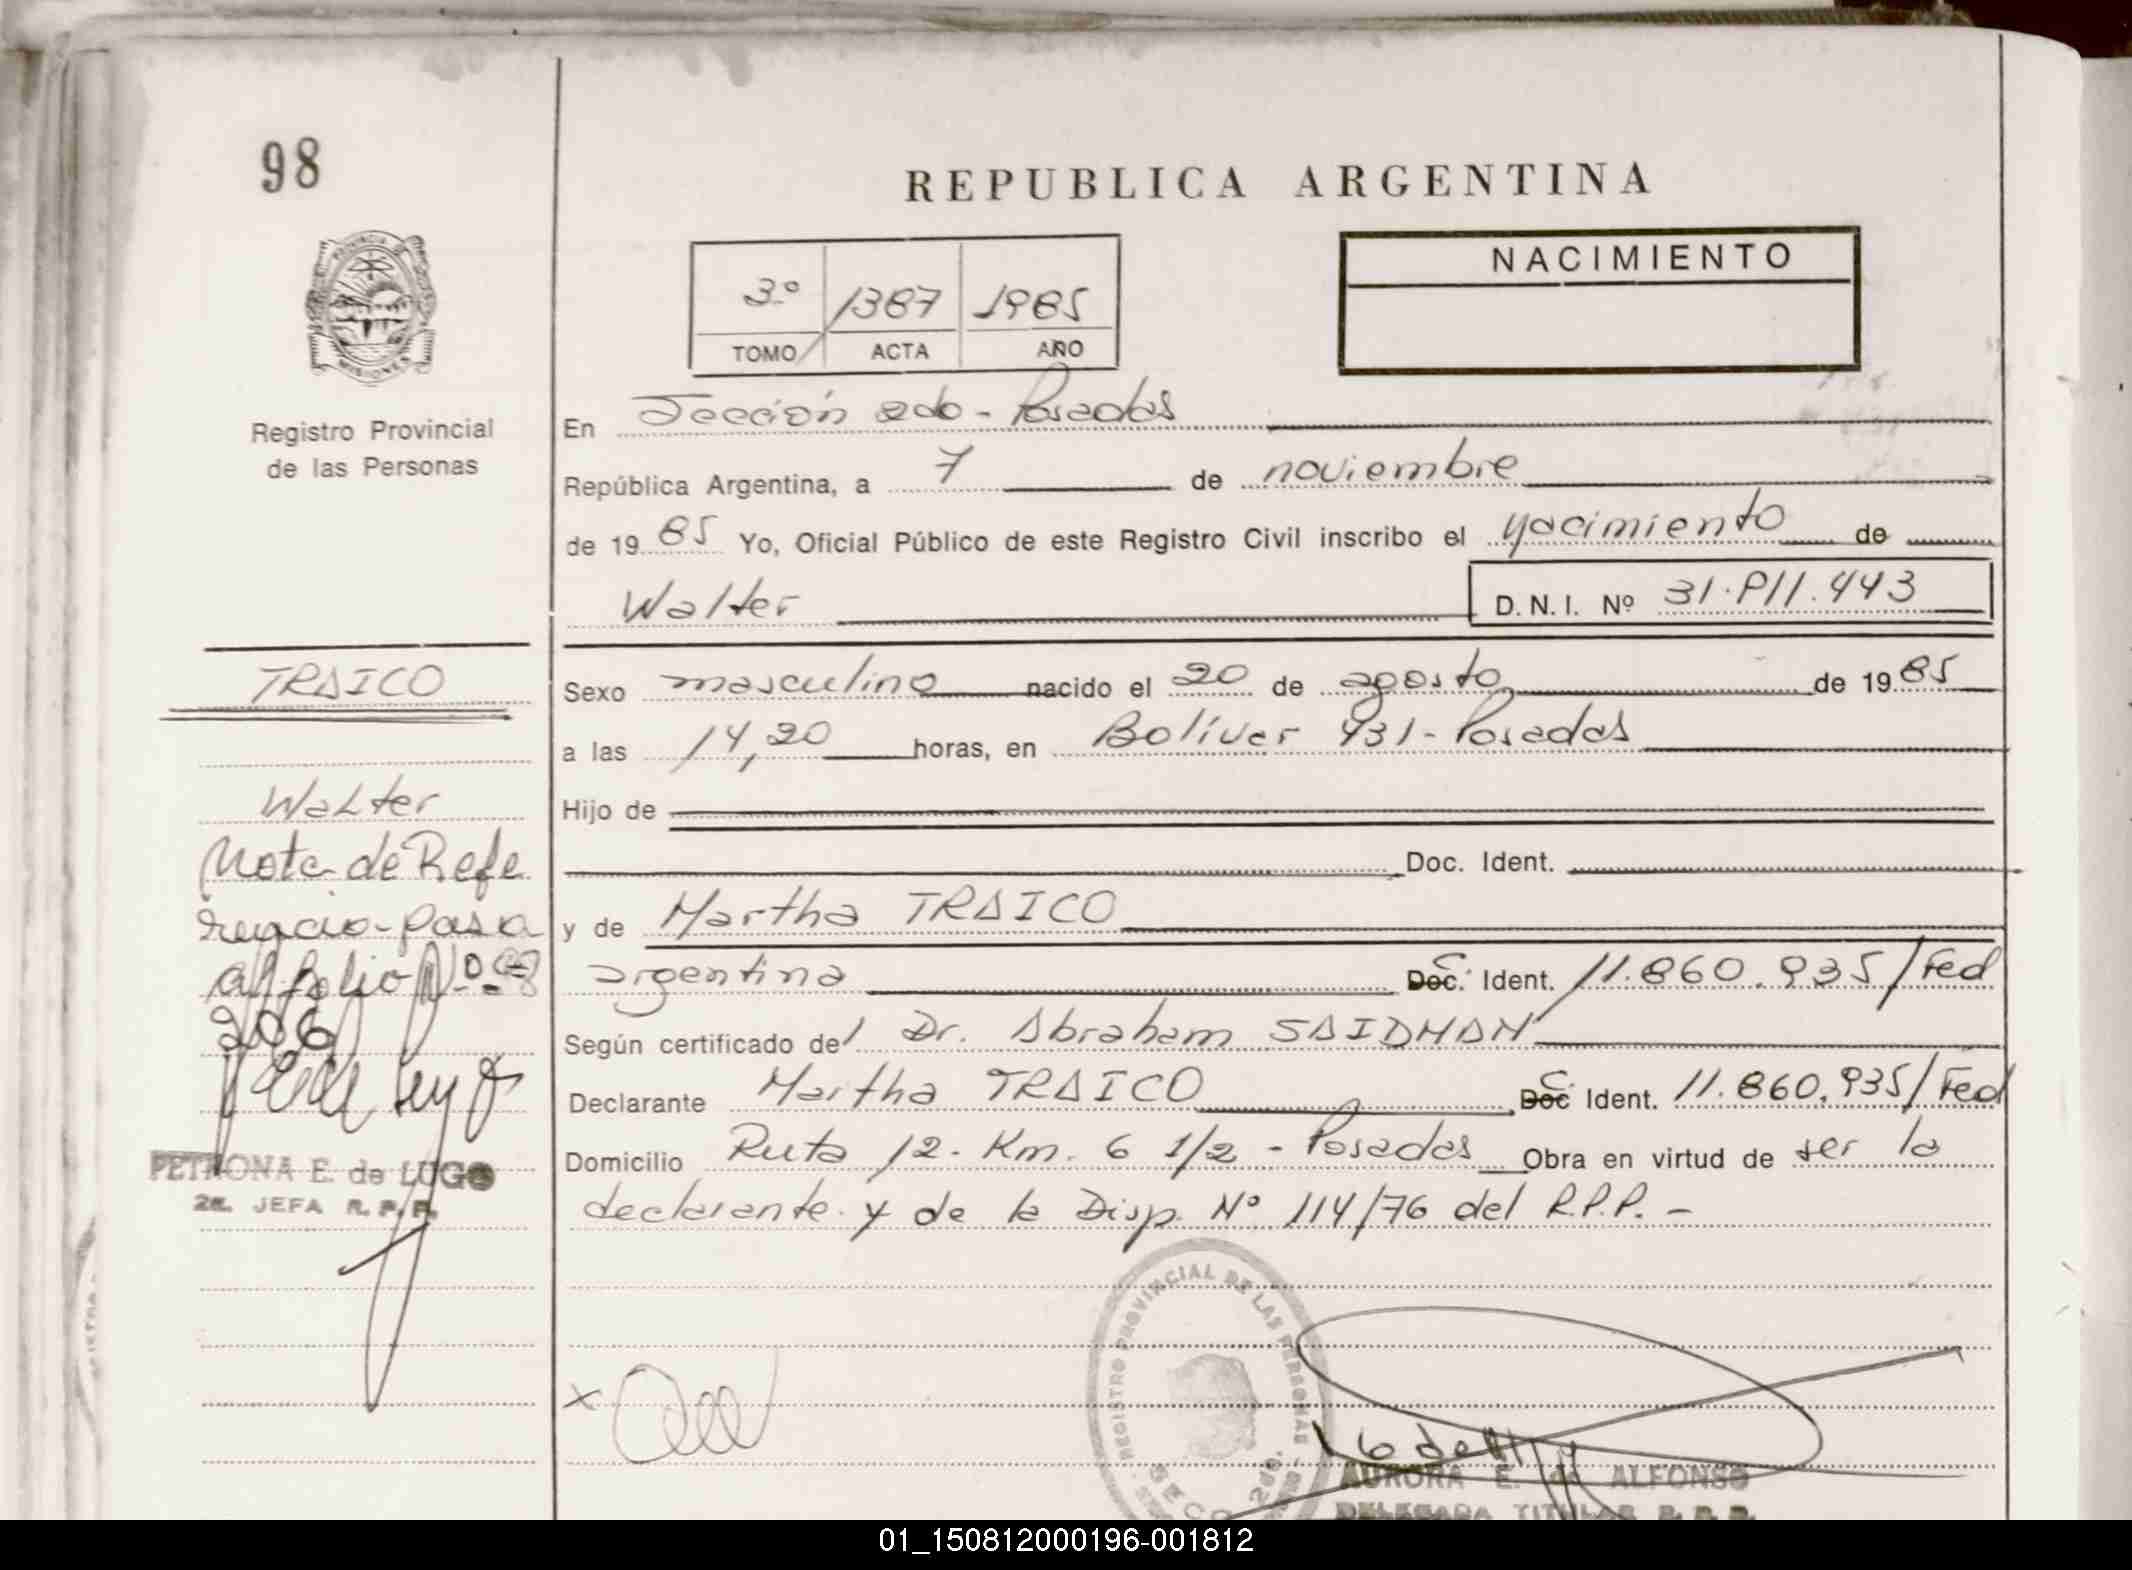 98
REPUBLICA ARGENTINA
PROVINCIA DE
MISIONES
NACIMIENTO
3º 1387 1985
TOMO ACTA AÑO
Registro Provincial
de las Personas
En Sección 2do - Posadas
República Argentina, a 7 de noviembre
de 19 85 Yo, Oficial Público de este Registro Civil inscribo el nacimiento de
Walter D.N.I. Nº 31.911.443
TRAICO
Sexo masculino nacido el 20 de agosto de 19 85
a las 14,20 horas, en Bolívar 931 - Posadas
Walter
Hijo de
Nota de Refe
Doc. Ident.
rencia - pasa
y de Martha TRAICO
al folio Nº
argentina Doc. C. Ident. 11.860.935/Fed
206
Según certificado del Dr. Abraham SAIDMAN
Declarante Martha TRAICO Doc C. Ident. 11.860.935/Fed
PETRONA E. de LUGO
2da. JEFA R. P. P.
Domicilio Ruta 12 - Km. 6 1/2 - Posadas Obra en virtud de ser la
declarante y de la Disp. Nº 114/76 del R.P.P. -
REGISTRO PROVINCIAL DE LAS PERSONAS
SECC. 2do.
x
AURORA E. de ALFONSO
DELEGADA TITULAR R. P. P.
01_150812000196-001812